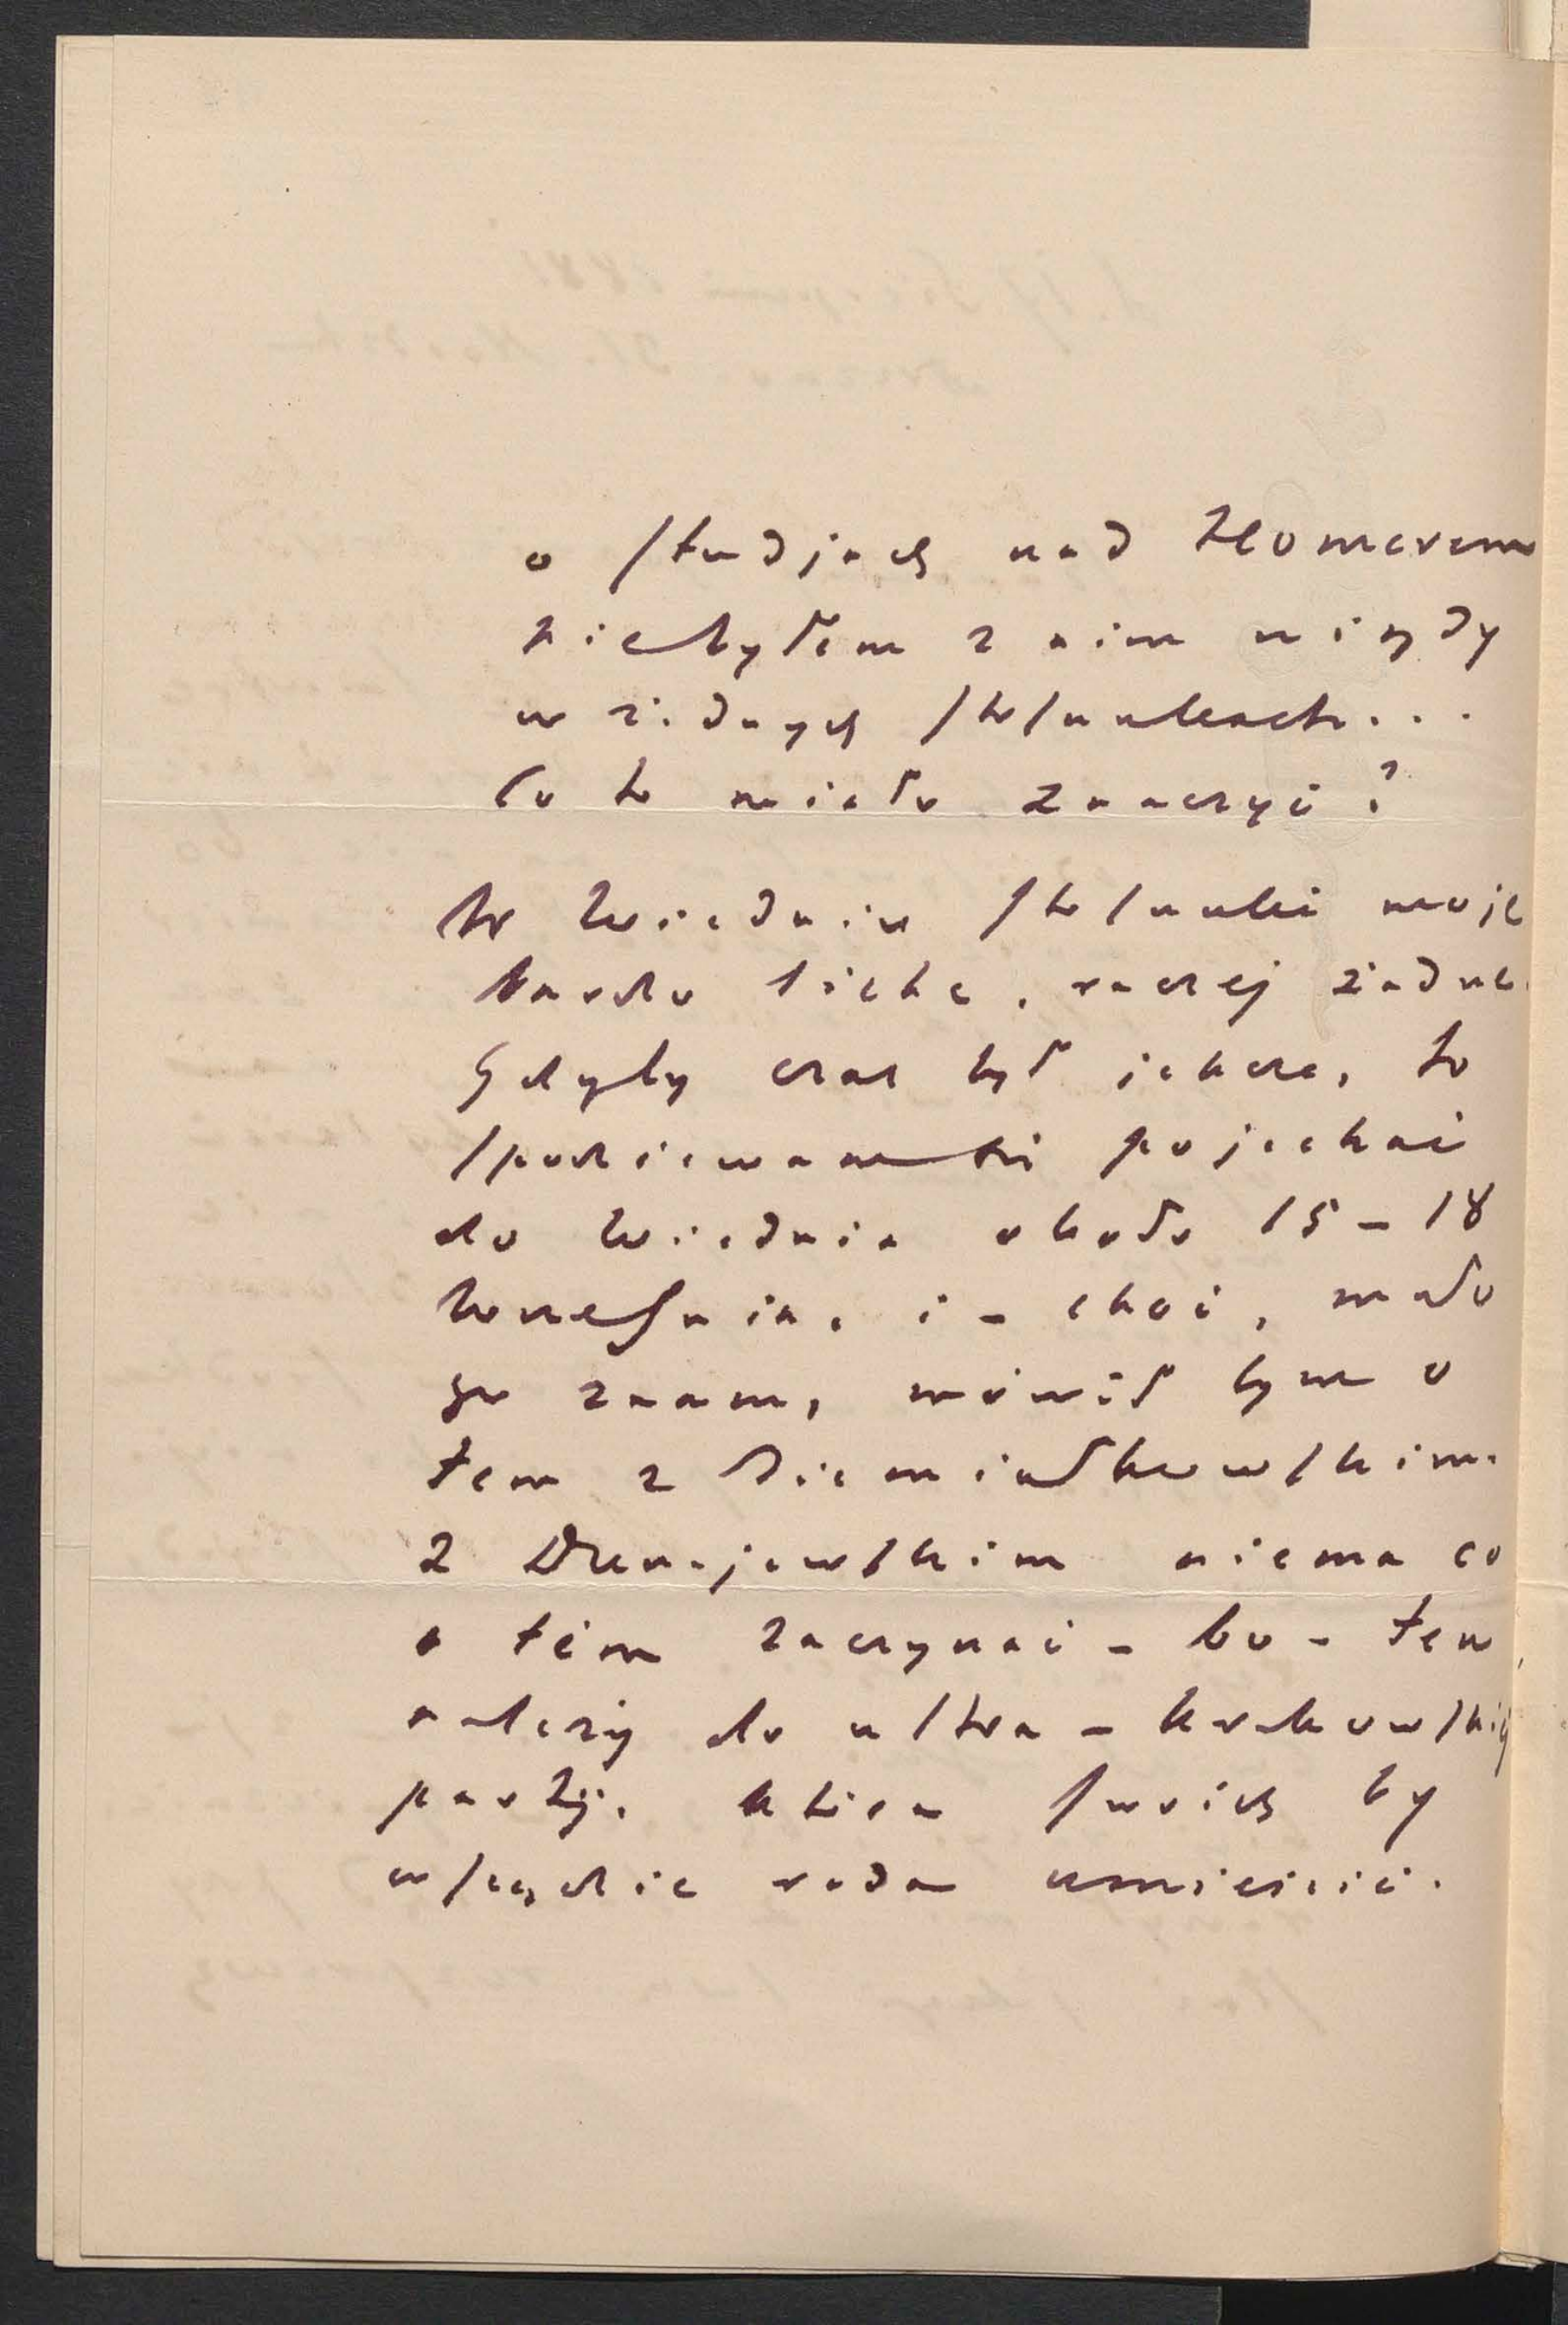 o studjach nad Homerem
niebyłem z nim nigdy
w żadnych stosunkach...
Co to miało znaczyć?
W Wiedniu stosunki moje
bardzo liche, raczej żadne.
Gdyby czas był jeszcze, to
spodziewam się pojechać
do Wiednia około 15 – 18
Września, i – choć, mało
go znam, mówił bym o
tem z Ziemiałkowskim.
Z Dunajewskim niema co
o tém zaczynać – bo – ten
należy do ultra – krakowskiéj
partji, która swoich by
wszędzie rada umieścić.